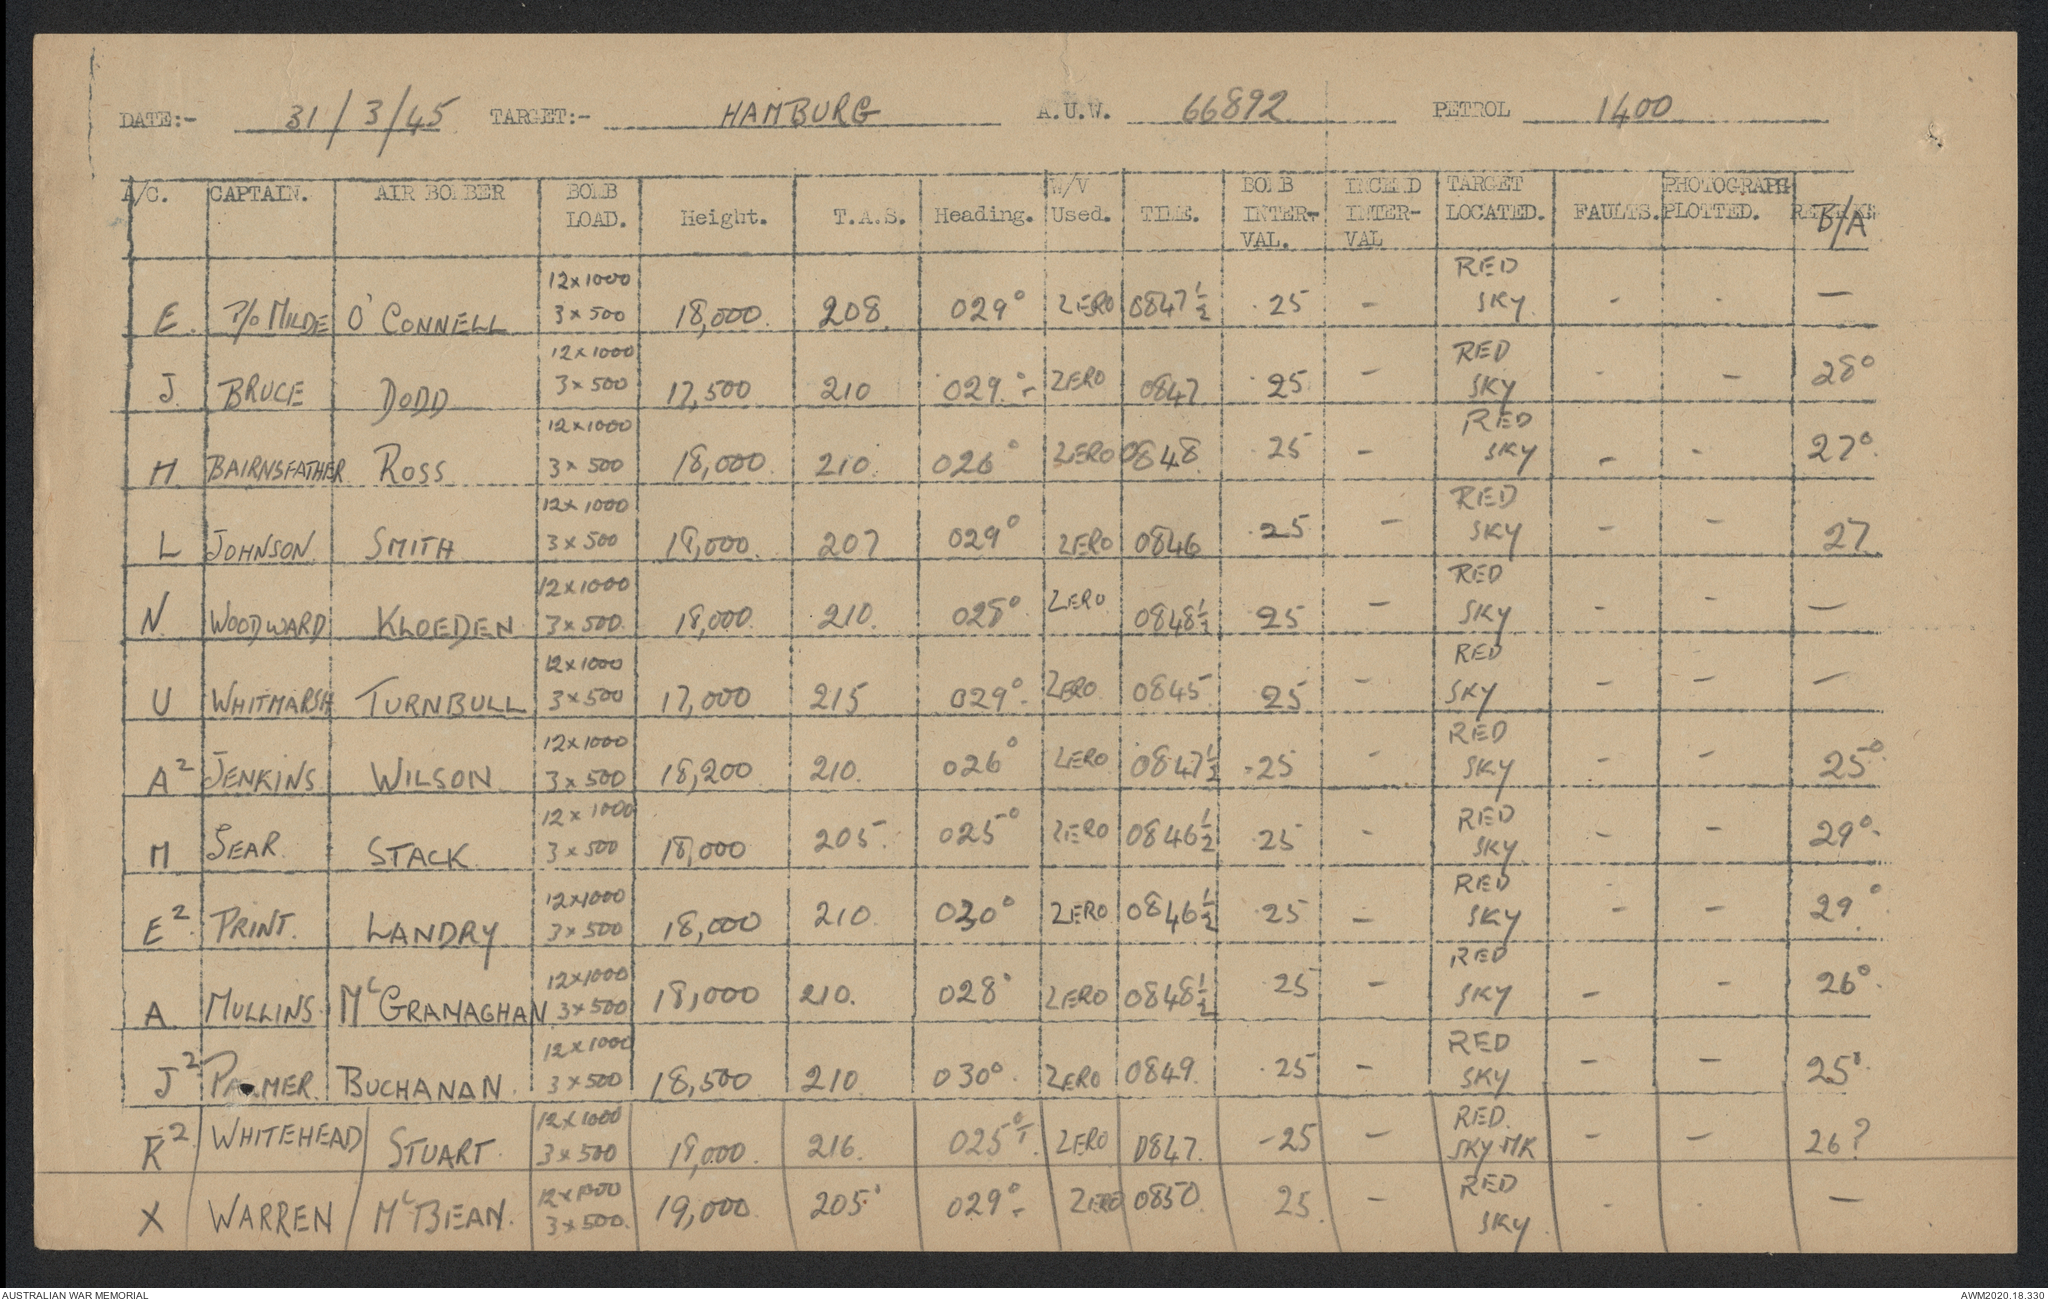 DATE:- 31/3/45 TARGET:- HAMBURG A.U.W. 66892 PETROL 1400
A/C. CAPTAIN. AIR BOMBER BOMB LOAD. Height. T.A.S. Heading. W/V Used. TIME. BOMB INTER-VAL. INCEND INTER-VAL TARGET LOCATED. FAULTS. PHOTOGRAPH PLOTTED. B/A
12x1000 RED
E. P/O MILDE O'CONNELL 3x500 18,000. 208 029° ZERO 0847½ .25 - SKY. - - —
12x1000 RED
J BRUCE DODD 3x500 17,500 210 029°- ZERO 0847 .25 - SKY - - 28°
12x1000 RED
H BAIRNSFATHER ROSS 3x500 18,000. 210. 026° ZERO 0848 .25 - SKY - - 27°
12x1000 RED
L JOHNSON SMITH 3x500 18,000. 207 029° ZERO 0846 .25 - SKY - - 27
12x1000 RED
N WOODWARD KLOEDEN 3x500 18,000. 210. 028° ZERO 0848½ .25 - SKY - - —
12x1000 RED
U WHITMARSH TURNBULL 3x500 17,000 215 029°- ZERO 0845 .25 - SKY - - —
12x1000 RED
A² JENKINS WILSON 3x500 18,200 210. 026° ZERO 0847½ .25 - SKY - - 25°
12x1000 RED
M SEAR STACK 3x500 18,000 205. 025° ZERO 0846½ .25 - SKY - - 29°.
12x1000 RED
E² PRINT. LANDRY 3x500 18,000 210. 030° ZERO 0846½ .25 - SKY - - 29°
12x1000 RED
A MULLINS McGRANAGHAN 3x500 18,000 210. 028° ZERO 0848½ .25 - SKY - - 26°
12x1000 RED
J² PALMER. BUCHANAN. 3x500 18,500 210 030°. ZERO 0849. .25 - SKY - - 25°.
12x1000 RED.
K² WHITEHEAD STUART 3x500 18,000. 216. 025°T. ZERO 0847. .25 - SKY MK - - 26?
12x1000 RED
X WARREN McBEAN. 3x500. 19,000. 205. 029°- ZERO 0850 .25 - SKY - . —
AUSTRALIAN WAR MEMORIAL AWM2020.18.330